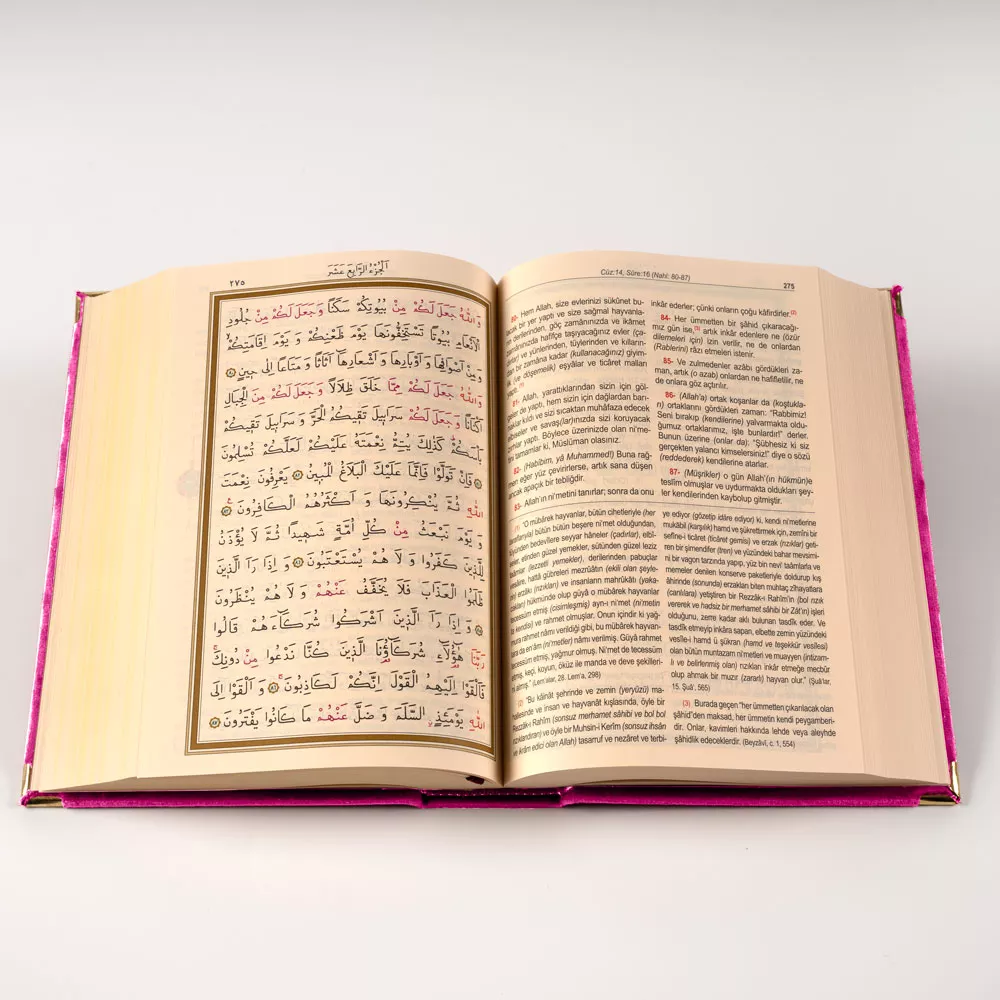 اَلْجُزْءُ الرَّابِعَ عَشَرَ
٢٧٥
وَاللّٰهُ جَعَلَ لَكُمْ مِنْ بُيُوتِكُمْ سَكَنًا وَجَعَلَ لَكُمْ مِنْ جُلُودِ
الْاَنْعَامِ بُيُوتًا تَسْتَخِفُّونَهَا يَوْمَ ظَعْنِكُمْ وَيَوْمَ اِقَامَتِكُمْ
وَمِنْ اَصْوَافِهَا وَاَوْبَارِهَا وَاَشْعَارِهَا اَثَاثًا وَمَتَاعًا اِلٰى حِينٍ
وَاللّٰهُ جَعَلَ لَكُمْ مِمَّا خَلَقَ ظِلَالًا وَجَعَلَ لَكُمْ مِنَ الْجِبَالِ
اَكْنَانًا وَجَعَلَ لَكُمْ سَرَابِيلَ تَقِيكُمُ الْحَرَّ وَسَرَابِيلَ تَقِيكُمْ
بَاْسَكُمْ كَذٰلِكَ يُتِمُّ نِعْمَتَهُ عَلَيْكُمْ لَعَلَّكُمْ تُسْلِمُونَ
فَاِنْ تَوَلَّوْا فَاِنَّمَا عَلَيْكَ الْبَلَاغُ الْمُبِينُ يَعْرِفُونَ نِعْمَتَ
اللّٰهِ ثُمَّ يُنْكِرُونَهَا وَاَكْثَرُهُمُ الْكَافِرُونَ
وَيَوْمَ نَبْعَثُ مِنْ كُلِّ اُمَّةٍ شَهِيدًا ثُمَّ لَا يُؤْذَنُ
لِلَّذِينَ كَفَرُوا وَلَا هُمْ يُسْتَعْتَبُونَ وَاِذَا رَاَ الَّذِينَ
ظَلَمُوا الْعَذَابَ فَلَا يُخَفَّفُ عَنْهُمْ وَلَا هُمْ يُنْظَرُونَ
وَاِذَا رَاَ الَّذِينَ اَشْرَكُوا شُرَكَٓاءَهُمْ قَالُوا
رَبَّنَا هٰٓؤُ۬لَٓاءِ شُرَكَٓاؤُ۬نَا الَّذِينَ كُنَّا نَدْعُوا مِنْ دُونِكَ
فَاَلْقَوْا اِلَيْهِمُ الْقَوْلَ اِنَّكُمْ لَكَاذِبُونَ وَاَلْقَوْا اِلَى
اللّٰهِ يَوْمَئِذٍ السَّلَمَ وَضَلَّ عَنْهُمْ مَا كَانُوا يَفْتَرُونَ
Cüz:14, Sûre:16 (Nahl: 80-87)
275
80- Hem Allah, size evlerinizi sükûnet bu-
lacak bir yer yaptı ve size sağmal hayvanla-
rın derilerinden, göç zamânınızda ve ikâmet
zamânınızda hafifçe taşıyacağınız evler (ça-
dırlar) ve yünlerinden, tüylerinden ve kılların-
dan bir zamâna kadar (kullanacağınız) giyim-
lik (ve döşemelik) eşyâlar ve ticâret malları
yaptı. (1)
81- Allah, yarattıklarından sizin için göl-
geler de yaptı, hem sizin için dağlardan barı-
naklar kıldı ve sizi sıcaktan muhâfaza edecek
elbiseler ve savaş(lar)ınızda sizi koruyacak
zırhlar yaptı. Böylece üzerinizde olan ni'me-
tini tamamlar ki, Müslüman olasınız.
82- (Habîbim, yâ Muhammed!) Buna rağ-
men eğer yüz çevirirlerse, artık sana düşen
ancak apaçık bir tebliğdir.
83- Allah'ın ni'metini tanırlar; sonra da onu
inkâr ederler; çünki onların çoğu kâfirdirler. (2)
84- Her ümmetten bir şâhid çıkaracağı-
mız gün ise, (3) artık inkâr edenlere ne (özür
dilemeleri için) izin verilir, ne de onlardan
(Rablerini) râzı etmeleri istenir.
85- Ve zulmedenler azâbı gördükleri za-
man, artık (o azab) onlardan ne hafifletilir, ne
de onlara göz açtırılır.
86- (Allah'a) ortak koşanlar da (koştukla-
rı) ortaklarını gördükleri zaman: "Rabbimiz!
Seni bırakıp (kendilerine) yalvarmakta oldu-
ğumuz ortaklarımız, işte bunlardır!" derler.
Bunun üzerine (onlar da): "Şübhesiz ki siz
gerçekten yalancı kimselersiniz!" diye o sözü
(reddederek) kendilerine atarlar.
87- (Müşrikler) o gün Allah'(ın hükmün)e
teslîm olmuşlar ve uydurmakta oldukları şey-
ler kendilerinden kaybolup gitmiştir.
(1) "O mübârek hayvanlar, bütün cihetleriyle (her
taraflarıyla) bütün bütün beşere ni'met olduğundan,
tüyünden bedevîlere seyyar hâneler (çadırlar), elbi-
seler, elinden güzel yemekler, sütünden güzel leziz
taâmlar (lezzetli yemekler), derilerinden pabuçlar
vesâire, hattâ gübreleri mezrûâtın (ekili olan şeyle-
rin) erzakı (rızıkları) ve insanların mahrûkātı (yaka-
cakları) hükmünde olup gûyâ o mübârek hayvanlar
tecessüm etmiş (cisimleşmiş) ayn-ı ni'met (ni'metin
tâ kendisi) ve rahmet olmuşlar. Onun içindir ki yağ-
mura rahmet nâmı verildiği gibi, bu mübârek hayvan-
lara da en'âm (ni'metler) nâmı verilmiş. Gûyâ rahmet
tecessüm etmiş, yağmur olmuş. Ni'met de tecessüm
etmiş, keçi, koyun, öküz ile manda ve deve şekilleri-
ni almış." (Lem'alar, 28. Lem'a, 298)
(2) "Bu kâinât şehrinde ve zemin (yeryüzü) ma-
hallesinde ve insan ve hayvanât kışlasında, öyle bir
Rezzâk-ı Rahîm (sonsuz merhamet sâhibi ve bol bol
rızıklandıran) ve öyle bir Muhsin-i Kerîm (sonsuz ihsân
ve ikrâm edici olan Allah) tasarruf ve nezâret ve terbi-
ye ediyor (gözetip idâre ediyor) ki, kendi ni'metlerine
mukābil (karşılık) hamd ve şükrettirmek için, zemîni bir
sefîne-i ticâret (ticaret gemisi) ve erzak (rızıklar) geti-
ren bir şimendifer (tren) ve yüzündeki bahar mevsimi-
ni bir vagon tarzında yapıp, yüz bin nevi' taâmlarla ve
memeler denilen konserve paketleriyle doldurup kış
âhirinde (sonunda) erzakları biten muhtaç zîhayatlara
(canlılara) yetiştiren bir Rezzâk-ı Rahîm'in (bol rızık
vererek ve hadsiz bir merhamet sâhibi bir Zât'ın) işleri
olduğunu, zerre kadar aklı bulunan tasdîk eder. Ve
tasdîk etmeyip inkâra sapan, elbette zemin yüzündeki
vesîle-i hamd ü şükran (hamd ve teşekkür vesîlesi)
olan bütün muntazam ni'metleri ve muayyen (intizam-
lı ve belirlenmiş olan) rızıkları inkâr etmeğe mecbûr
olup ahmak bir muzır (zararlı) hayvan olur." (Şuâ'lar,
15. Şuâ', 565)
(3) Burada geçen "her ümmetten çıkarılacak olan
şâhid'den maksad, her ümmetin kendi peygamberi-
dir. Onlar, kavimleri hakkında lehde veya aleyhde
şâhidlik edeceklerdir. (Beyzâvî, c. 1, 554)